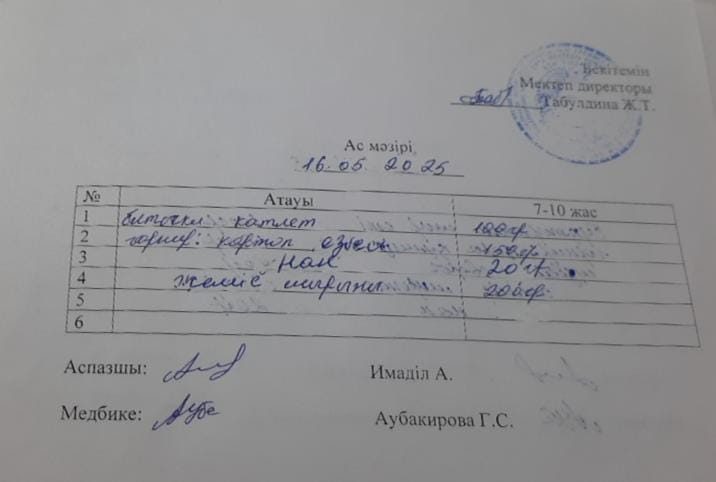 Бекітемін
Мектеп директоры
Табулдина Ж.Т.
Ас мәзірі
16.05.2025
№ Атауы 7-10 жас
1 биточки котлет 100гр
2 гарнир: картоп езбесі 150гр
3 нан 20гр
4 жеміс шырыны 200гр
5
6
Аспазшы: Имаділ А.
Медбике: Аубакирова Г.С.